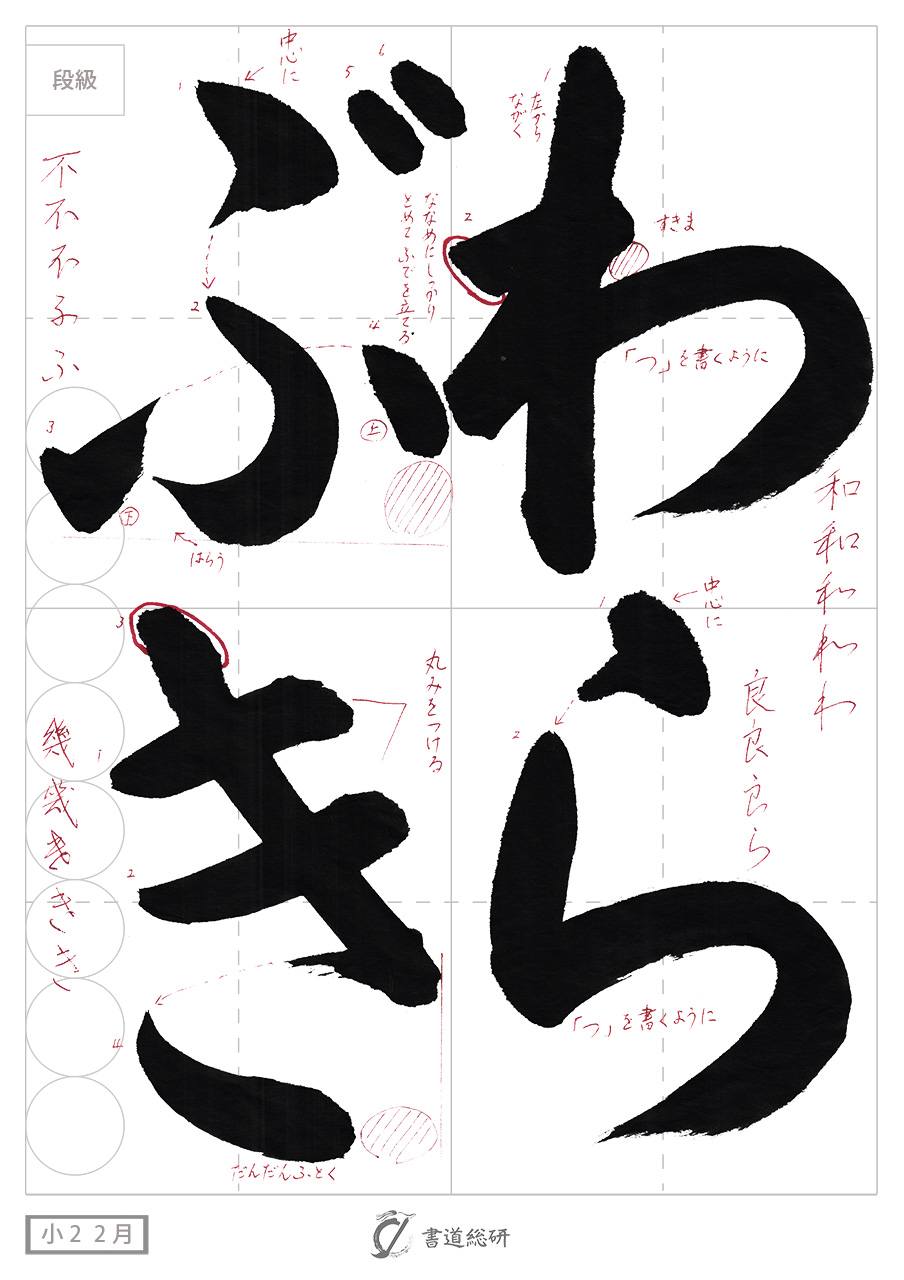 わら
ぶき
段級
中心に
1
2
3
4
5
6
ななめにしっかり
とめてふでを立てる
上
下
はらう
不不不子ふ
1
左から
ながく
2
すきま
「つ」を書くように
和和和和わ
1
中心に
2
良良良ら
「つ」を書くように
3
丸みをつける
1
2
4
だんだんふとく
幾幾ききき
小22月
書道総研